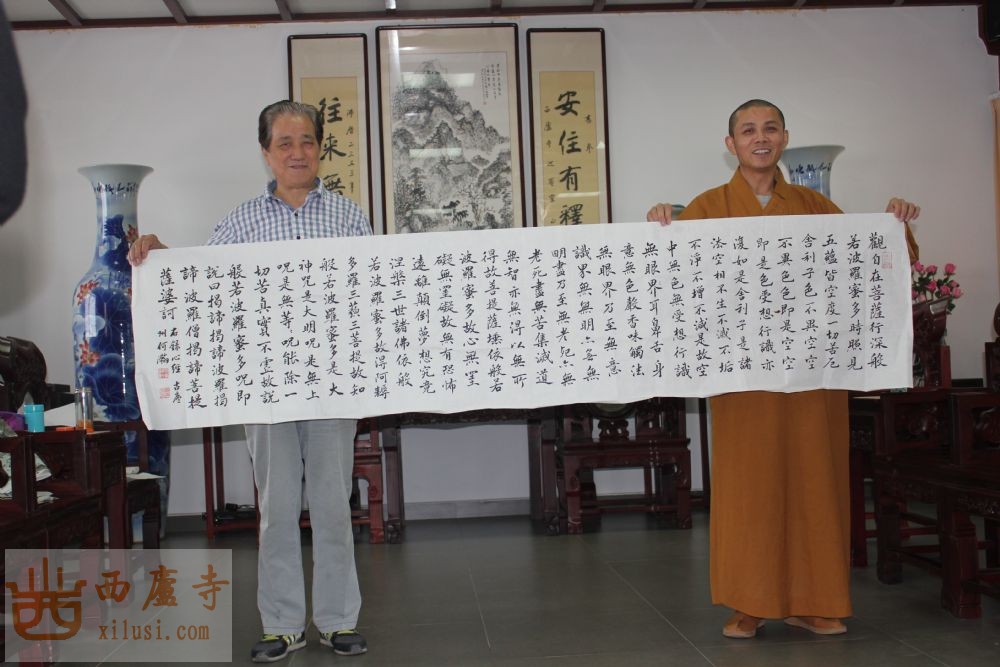 安住有釋
往来無
觀自在菩薩行深般
若波羅蜜多時照見
五蘊皆空度一切苦厄
舍利子色不異空空
不異色色即是空空
即是色受想行識亦
復如是舍利子是諸
法空相不生不滅不垢
不淨不增不減是故空
中無色無受想行識
無眼界耳鼻舌身
意無色聲香味觸法
無眼界乃至無意
識界無無明亦無無
明盡乃至無老死亦無
老死盡無苦集滅道
無智亦無得以無所
得故菩提薩埵依般若
波羅蜜多故心無罣
礙無罣礙故無有恐怖
遠離顛倒夢想究竟
涅槃三世諸佛依般
若波羅蜜多故得阿耨
多羅三藐三菩提故知
般若波羅蜜多是大
神咒是大明咒是無上
咒是無等咒能除一
切苦真實不虛故說
般若波羅蜜多咒即
說曰揭諦揭諦波羅揭
諦波羅僧揭諦菩提
薩婆訶
右錄心經
西廬寺
xilusi.com